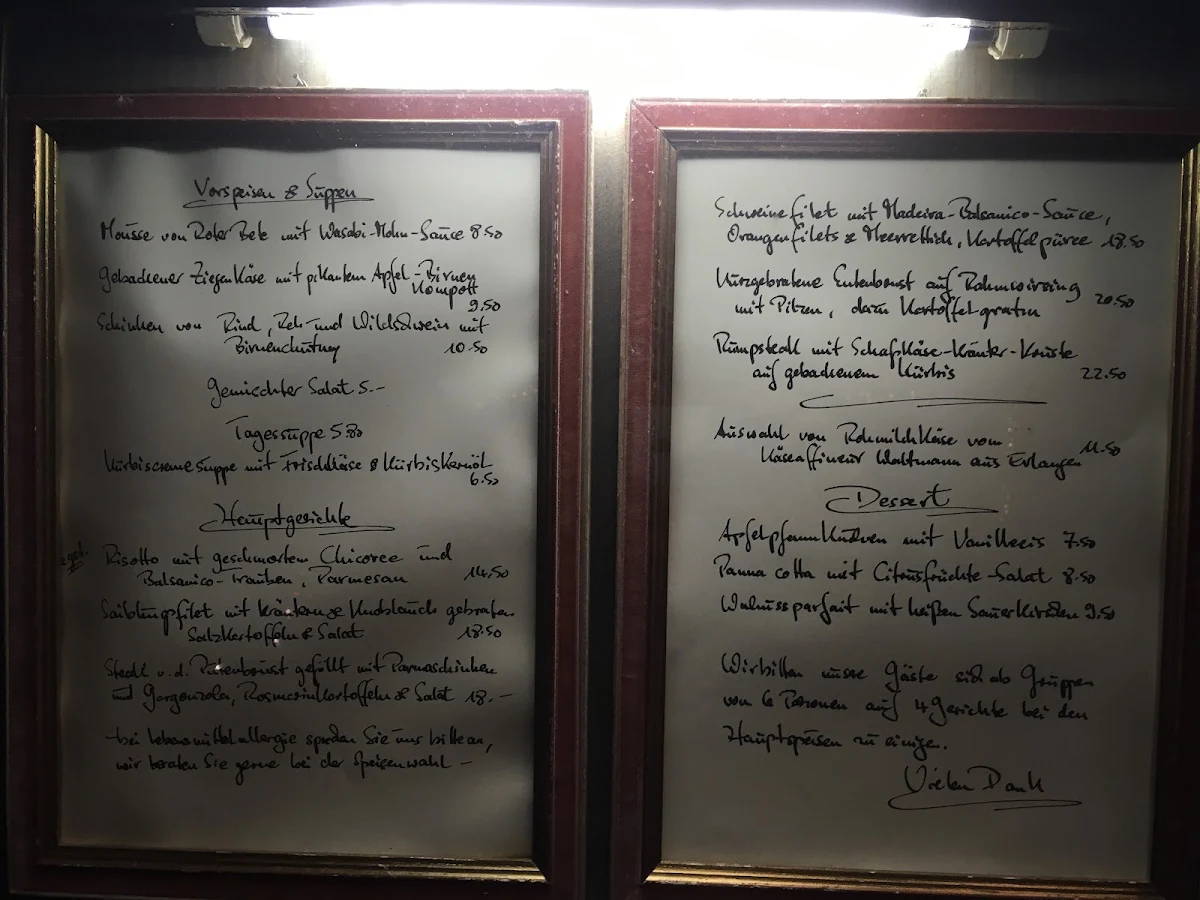 Vorspeisen & Suppen
Mousse von Roter Bete mit Wasabi-Mohn-Sauce 8.50
Gebackener Ziegenkäse mit pikantem Apfel-Birnen
Kompott
9.50
Schinken von Rind, Reh- und Wildschwein mit
Birnenchutney 10.50
Gemischter Salat 5.--
Tagessuppe 5.80
Kürbiscremesuppe mit Frischkäse & Kürbiskernöl
6.50
Hauptgerichte
Risotto mit geschmortem Chicoree und
Balsanico-Trauben, Parmesan 14.50
Saiblingsfilet mit Kräutern & Knoblauch gebraten
Salzkartoffeln & Salat 18.50
Steak v. d. Putenbrust gefüllt mit Parmaschinken
und Gorgonzola, Rosmarinkartoffeln & Salat 18.-
- bei Lebensmittelallergie sprechen Sie uns bitte an,
wir beraten Sie gerne bei der Speisenwahl -
Schweinefilet mit Madeira-Balsamico-Sauce,
Orangenfilets & Meerrettich, Kartoffelpüree 18.50
Kurzgebratene Entenbrust auf Rahmwirsing
mit Pilzen, dazu Kartoffelgratin 20.50
Rumpsteak mit Schafskäse-Kräuter-Kruste
auf gebackenem Kürbis 22.50
Auswahl von Rohmilchkäse vom
Käseaffineur Waltmann aus Erlangen 11.50
Dessert
Apfelpfannkuchen mit Vanilleeis 7.50
Panna cotta mit Citrusfrüchte-Salat 8.50
Walnussparfait mit heißen Sauerkirschen 9.50
Wir bitten unsere Gäste sich ab Gruppen
von 6 Personen auf 4 Gerichte bei den
Hauptspeisen zu einigen.
Vielen Dank